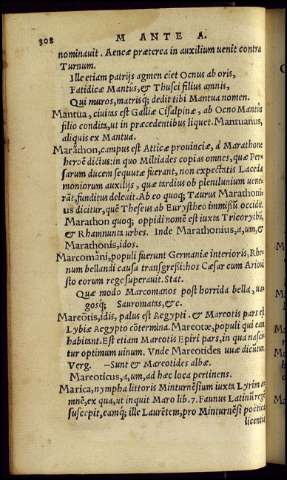 308 M ANTE A.
nominauit. Aeneæ præterea in auxilium uenit contra
Turnum.
Ille etiam patrijs agmen ciet Ocnus ab oris,
Fatidicæ Mantus, & Thusci filius amnis,
Qui muros, matrisq; dedit tibi Mantua nomen.
Mantua, ciuitas est Galliæ Cisalpinæ, ab Ocno Mantus
filio condita, ut in præcedentibus liquet. Mantuanus,
aliquis ex Mantua.
Marathon, campus est Atticæ prouinciæ, à Marathone
heroë dictus: in quo Miltiades copias omnes, quæ Per-
sarum ducem sequutæ fuerant, non expectatis Lacedæ
moniorum auxilijs, quæ tardius ob plenilunium uene-
rāt, funditus deleuit. Ab eo quoq; Taurus Marathoni
us dicitur, quē Theseus ab Eurystheo immissū occidit.
Marathon quoq; oppidi nomē est iuxta Tricorythū,
& Rhamnunta urbes. Inde Marathonius, a, um, &
Marathonis, idos.
Marcomāni, populi fuerunt Germaniæ interioris, Rhe
num bellandi causa transgressi: hos Cæsar cum Ariou
sto eorum rege superauit. Stat.
Quæ modo Marcomanos post horrida bella, ua-
gosq; Sauromatas, &c.
Mareotis, idis, palus est Aegypti. & Mareotis pars est
Lybiæ Aegypto cōtermina. Mareotæ, populi qui eam
habitant. Est etiam Mareotis Epiri pars, in qua nasci-
tur optimum uinum. Vnde Mareotides uuæ dicūtur
Verg. —Sunt & Mareotides albæ.
Mareoticus, a, um, ad hæc loca pertinens.
Marica, nympha littoris Minturnēsium iuxta Lyrim am
mnē, ex qua, ut inquit Maro lib. 7. Faunus Latinū rege
suscepit, eamq; ille Laurētem, pro Minturnēsi poëtica
licentia